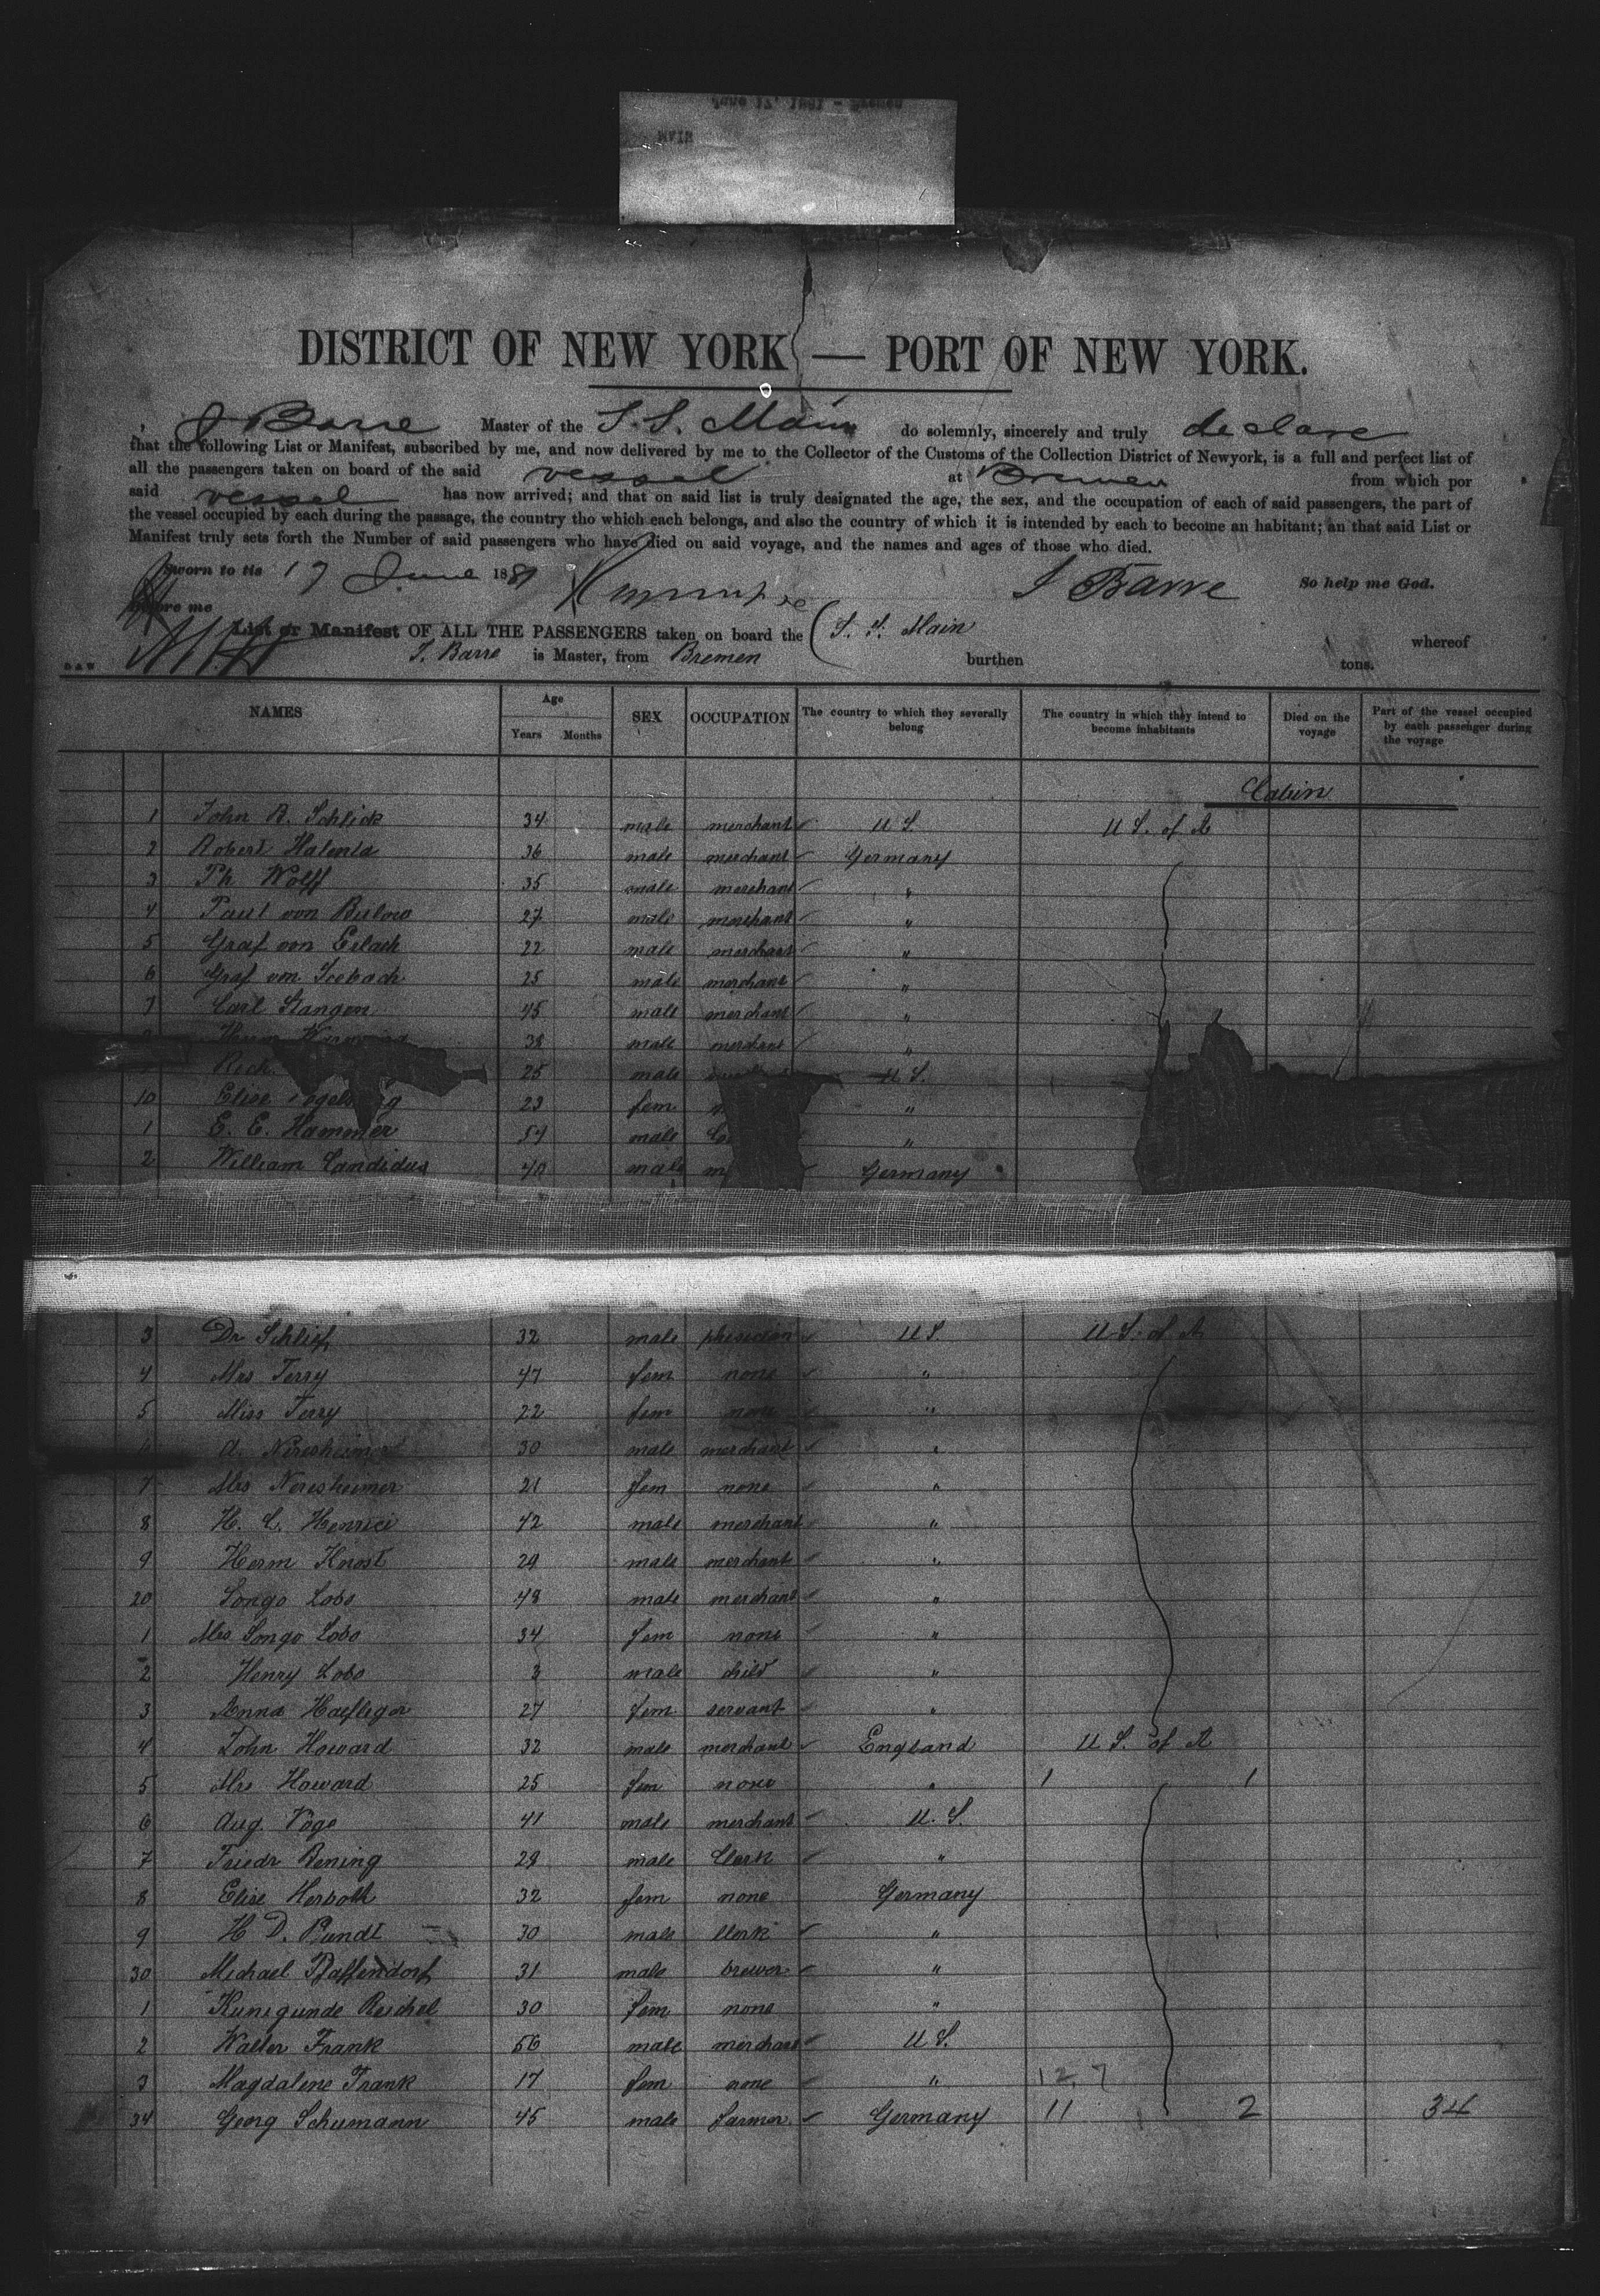 June 17, 1881 - Bremen
MAIN
DISTRICT OF NEW YORK — PORT OF NEW YORK.
J Barre Master of the S. S. Main do solemnly, sincerely and truly declare
that the following List or Manifest, subscribed by me, and now delivered by me to the Collector of the Customs of the Collection District of Newyork, is a full and perfect list of
all the passengers taken on board of the said vessel at Bremen from which por
said vessel has now arrived; and that on said list is truly designated the age, the sex, and the occupation of each of said passengers, the part of
the vessel occupied by each during the passage, the country tho which each belongs, and also the country of which it is intended by each to become an habitant; an that said List or
Manifest truly sets forth the Number of said passengers who have died on said voyage, and the names and ages of those who died.
Sworn to tis 17 June 1881 J Barre So help me God.
before me
List or Manifest OF ALL THE PASSENGERS taken on board the S. S. Main whereof
J. Barre is Master, from Bremen burthen tons.
NAMES Age Years Months SEX OCCUPATION The country to which they severally belong The country in which they intend to become inhabitants Died on the voyage Part of the vessel occupied by each passenger during the voyage
Cabin
1 John R. Schlick 34 male merchant U S. U S. of A
2 Robert Halenla 36 male merchant Germany
3 Ph Wolff 35 male merchant "
4 Paul von Bulow 27 male merchant "
5 Graf von Erlach 22 male merchant "
6 Graf von Seebach 25 male merchant "
7 Carl Stangen 45 male merchant "
38 male merchant "
Rich. 25 male U S.
10 Elise 23 fem "
1 E. E. Hammer 54 male "
2 William Candidus 40 male Germany
3 Dr Schlief 32 male physician U S. U S. of A
4 Mrs Terry 47 fem none "
5 Miss Terry 22 fem none "
6 A. Neresheimer 30 male merchant "
7 Mrs Neresheimer 21 fem none "
8 H. C. Henrici 42 male merchant "
9 Herm Knost 29 male merchant "
20 Longo Lobo 48 male merchant "
1 Mrs Longo Lobo 34 fem none "
2 Henry Lobo 3 male child "
3 Anna Haefliger 27 fem servant "
4 John Howard 32 male merchant England U S. of A
5 Mrs Howard 25 fem none " 1 1
6 Aug. Voge 41 male merchant U. S.
7 Friedr Bening 28 male Clerk "
8 Elise Herboth 32 fem none Germany
9 H. D. Pundt 30 male clerk "
30 Michael Pfaffendorf 31 male brewer "
1 Kunigunde Reichel 30 fem none "
2 Walter Frank 56 male merchant U S.
3 Magdalene Frank 17 fem none " 12 7
34 Georg Schumann 45 male farmer Germany 11 2 34